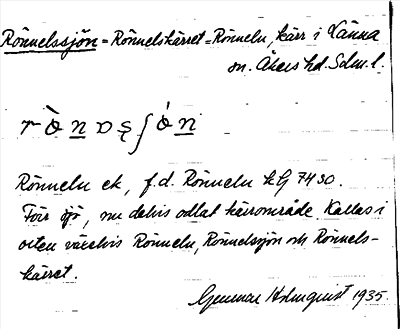 Rönnelssjön = Rönnelskärret = Rönneln, kärr i Länna
sn. Åkers hd. Sdm. l.
Rönneln ek, f.d. Rönneln kG 7430.
Förr sjö, nu delvis odlat kärrområde. Kallas i
orten växelvis Rönneln, Rönnelssjön och Rönnels-
kärret.
Gunnar Holmquist 1935.